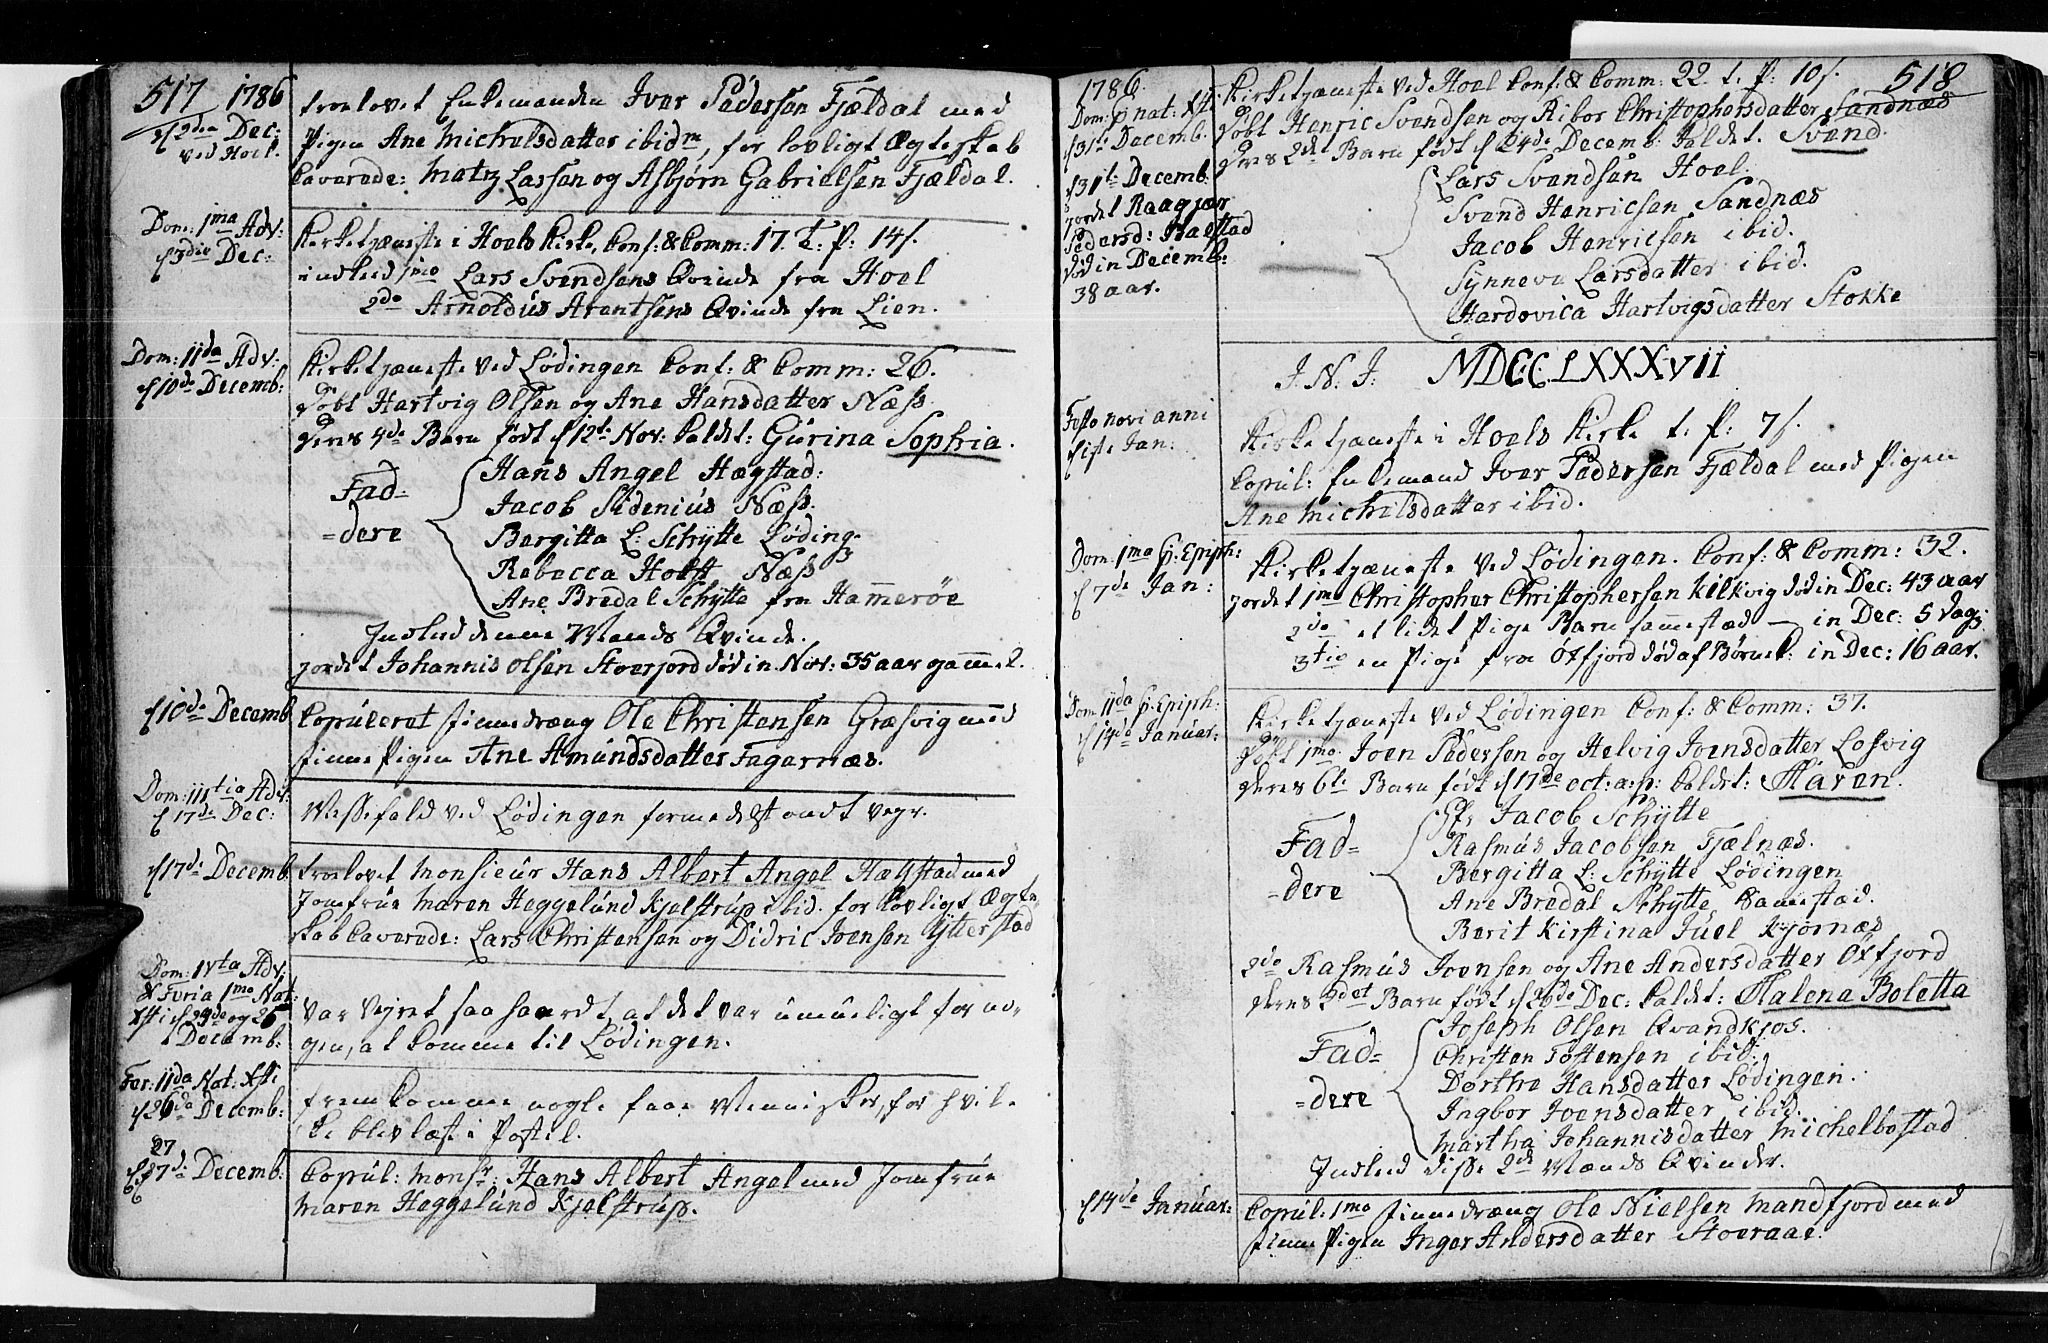 517 1786
d 2den Dec:
ved Hoel.
troelovet Enkemanden Iver Pedersen Fjældal med
Pigen Ane Michelsdatter ibidm, for lovligt Ægteskab
Caverede: Matz Larsen og Asbjørn Gabrielsen Fjældal.
Dom: 1ma Adv:
d 3die Dec:
Kirketjæneste i Hoels Kirke, Conf: & Comm: 17. T: P: 14 s.
indleed 1mo Lars Svendsens Qvinde fra Hoel
2do Arnoldus Arentsens Qvinde fra Lien.
Dom: 11da Adv:
d 10de Decemb:
Kirketjæneste ved Lødingen Conf: & Comm: 26.
døbt Hartvig Olsen og Ane Hansdatter Næss
deres 4de Barn født d 12te Nov: kaldet: Gurina Sophia.
Fad=
=dere
Hans Angel Hægstad:
Jacob Sidenius Næss.
Bergitta L: Schytte Løding:
Rebecca Holst Næss
Ane Bredal Schytte fra Hammerøe
Indleed denne Mands Qvinde.
jordet Johannis Olsen Stoerfjord død in Nov: 35 aar gammel.
d 10de Decemb
Copuleret Finnedræng Ole Christensen Græsvig med
Finne Pigen Ane Amundsdatter Fagarnæs.
Dom: 111tia Adv:
d 17de Dec:
Messefald ved Lødingen formedelst ondt Veyr.
d 17de Decemb.
troelovet Monsieur Hans Albert Angel Hægstad med
Jomfrue Maren Heggelund Kjelstrup ibid. for lovligt Ægte=
skab Caverede: Lars Christensen og Didric Joensen Ytterstad
Dom: 1Vta Adv:
& Feria 1ma Nat:
Xsti d 24de og 25
Decemb:
Var Veyret saa haardt, at det var umueligt for no=
gen, at komme til Lødingen.
Fer: 11da Nat: Xsti
d 26de Decemb:
fremkomme nogle faae Mennisker, for hvil=
ke blev læst i Postil.
27
d 27de Decemb:
Copul: Monsr: Hans Albert Angel med Jomfrue
Maren Heggelund Kjelstrup.
1786. 518
Dom: p nat: Xsti
d 31te Decemb.
Kirketjæneste ved Hoel Conf: & Comm: 22. t. P: 10 s.
døbt Henric Svendsen og Kibor Christophersdatter Sandnæs
deres 2det Barn født d 24de Decemb: kaldet. Svend.
Lars Svendsen Hoel.
Svend Henricsen Sandnæs
Jacob Henricsen ibid.
Synneva Larsdatter ibid.
Hardovica Hartvigsdatter Stokke
d 31te Decemb.
jordet Raagjær
Pedersd: Balstad
død in Decemb:
38 aar.
J. N. J: MDCCLXXXVII
Festo novi anni
d 1ste Jan:
Kirketjæneste i Hoels Kirke t. P: 7 s.
Copul: Enkemand Iver Pedersen Fjældal med Pigen
Ane Michelsdatter ibid.
Dom: 1ma P: Epiph:
d 7de Jan:
Kirketjæneste ved Lødingen. Conf: & Comm: 32.
jordet 1mo Christopher Christophersen Kilkvig død in Dec: 43 aar
2do et lidet Pige Barn sammestæd — in Dec: 5 Dag:
3tio en Pige fra Oxfjord død af Børnek: in Dec: 16 aar.
Dom: 11da P: Epiph:
d 14de Januar:
Kirketjæneste ved Lødingen Conf: & Comm: 37.
døbt 1mo. Joen Pedersen og Helvig Joensdatter Losvig
deres 6te Barn født d 17de oct: a: p: kaldet: Karen.
Fad=
=dere
Hr Jacob Schytte
Rasmus Jacobsen Fjælnæs.
Bergitta L: Schytte Lødingen
Ane Bredal Schytte Samestæd.
Berit Kirstina Juel Kjørnæs
2do Rasmus Joensen og Ane Andersdatter Oxfjord
deres 2det Barn født d 26de Dec: kaldet: Halena Boletta
Fad=
=dere
Joseph Olsen Qvandkjos.
Christen Tostensen ibid:
Dorthe Hansdatter Lødingen.
Ingbor Joensdatter ibid.
Martha Johannisdatter Michelbostad
Indleed disse 2de Mænds Qvinder.
d 14de Januar:
Copul: 1mo Finnedræng Ole Nielsen Mandfjord med
Finne Pigen Inger Andersdatter Stoeraae.